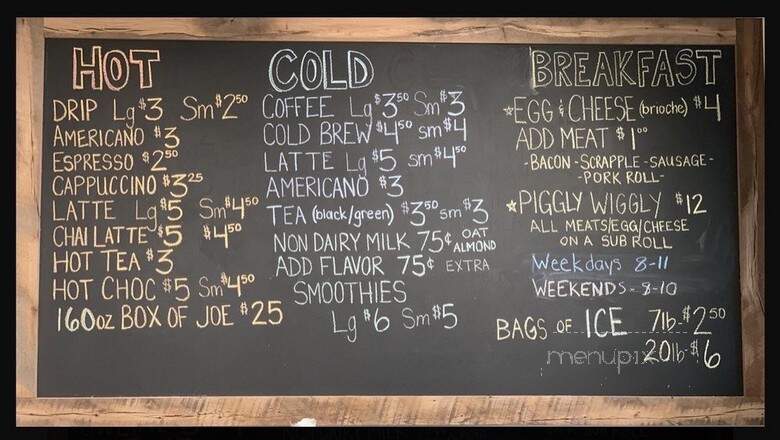 HOT
DRIP Lg $3 Sm $2.50
AMERICANO $3
ESPRESSO $2.50
CAPPUCCINO $3.25
LATTE Lg $5 Sm $4.50
CHAI LATTE $5 $4.50
HOT TEA $3
HOT CHOC $5 Sm $4.50
160oz BOX OF JOE $25
COLD
COFFEE Lg $3.50 Sm $3
COLD BREW $4.50 sm $4
LATTE Lg $5 sm $4.50
AMERICANO $3
TEA (black/green) $3.50 sm $3
NON DAIRY MILK 75¢ OAT ALMOND
ADD FLAVOR 75¢ EXTRA
SMOOTHIES
Lg $6 Sm $5
BREAKFAST
*EGG & CHEESE (brioche) $4
ADD MEAT $1.00
-BACON-SCRAPPLE-SAUSAGE-
-PORK ROLL-
*PIGGLY WIGGLY $12
ALL MEATS/EGG/CHEESE
ON A SUB ROLL
Weekdays 8-11
WEEKENDS-8-10
BAGS OF ICE 7lb-$2.50
20lb-$6
menupix